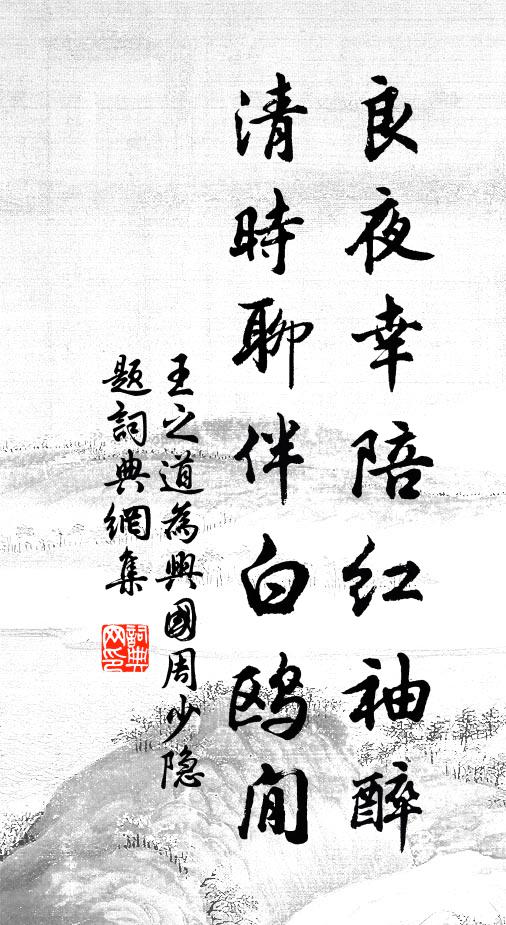 良夜幸陪红袖醉
清時聊伴白鸥閒
王之道為興國周少隐
题詞典網集
詞典
网印